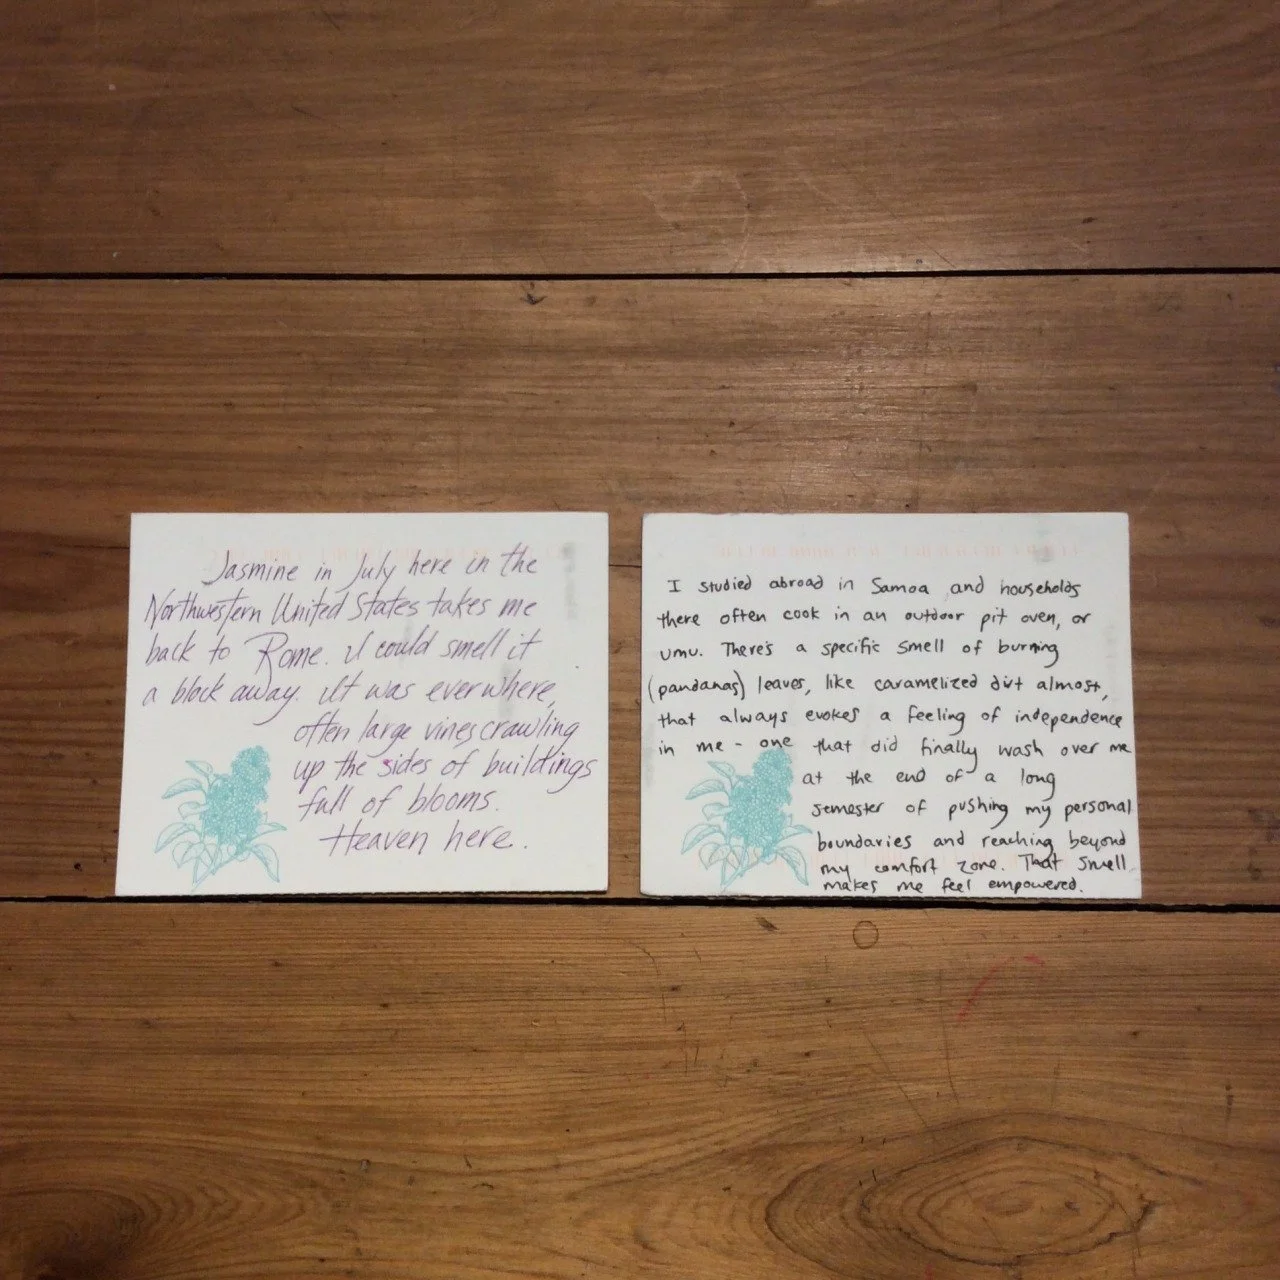 Jasmine in July here in the
Northwestern United States takes me
back to Rome. I could smell it
a block away. It was everwhere,
often large vines crawling
up the sides of buildings
full of blooms.
Heaven here.
I studied abroad in Samoa and households
there often cook in an outdoor pit oven, or
umu. There's a specific smell of burning
(pandanas) leaves, like caramelized dirt almost,
that always evokes a feeling of independence
in me - one that did finally wash over me
at the end of a long
semester of pushing my personal
boundaries and reaching beyond
my comfort zone. That smell
makes me feel empowered.